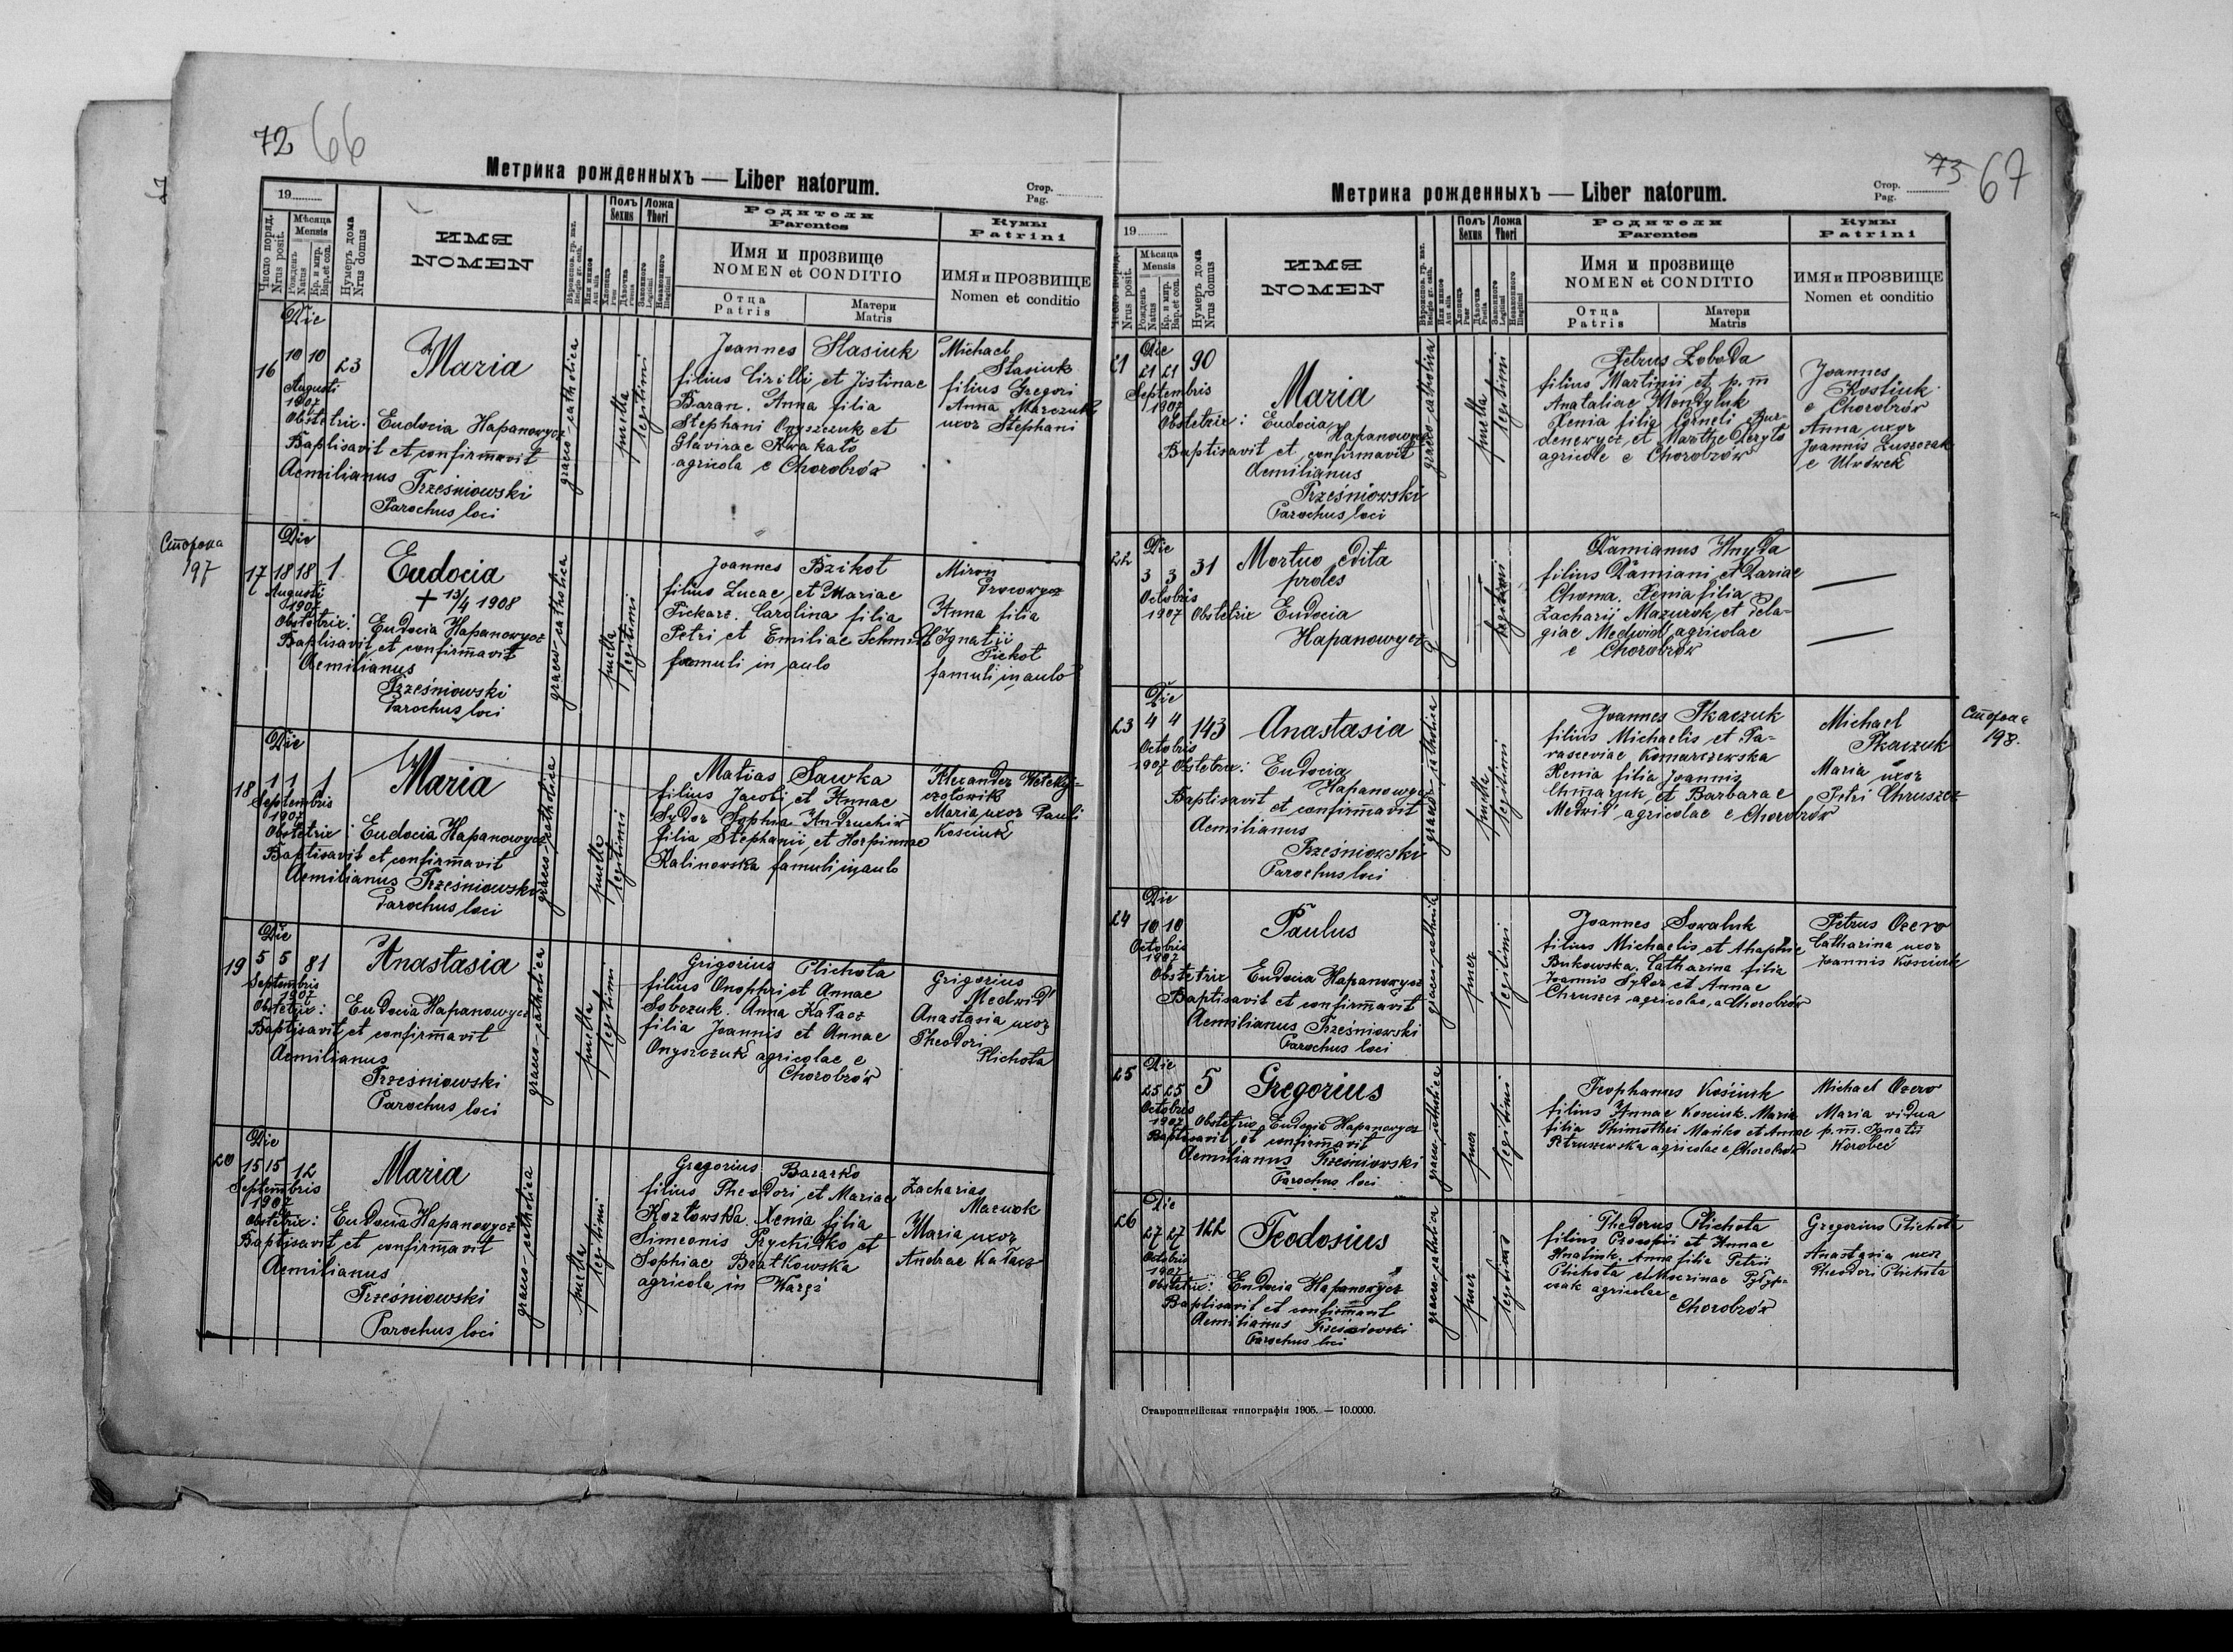 72 66
Метрика рожденныхъ — Liber natorum.
Стор.
Pag.
19
Число поряд.
Nrus posit.
Мѣсяца
Mensis
Рожденъ
Natus
Кр. и мир.
Bap. et con.
Нумеръ дома
Nrus domus
ИМЯ
NOMEN
Полъ
Sexus
Ложа
Thori
Родители
Parentes
Имя и прозвище
NOMEN et CONDITIO
Отца
Patris
Матери
Matris
Кумы
Patrini
ИМЯ и ПРОЗВИЩЕ
Nomen et conditio
Die
16 10 10 23 Maria
Augusti
1907
Obstetrix: Eudocia Hapanowycz
Baptisavit et confirmavit
Aemilianus
Trześniowski
Parochus loci
graeco-catholica
puella
legitimi
Joannes Stasiuk
filius Cirilli et Justinae
Baran. Anna filia
Stephani Onyszczuk et
Glavirae Kwakało
agricola e Chorobrów
Michael
Stasiuk
filius Gregori
Anna Marczuk
uxor Stephani
Сторона
197
Die
17 18 18 1 Eudocia
+ 13/4 1908
Augusti
1907
Obstetrix: Eudocia Hapanowycz
Baptisavit et confirmavit
Aemilianus
Trześniowski
Parochus loci
graeco-catholica
puella
legitimi
Joannes Bzikot
filius Lucae et Mariae
Piekarz. Carolina filia
Petri et Emiliae Schmidt
famuli in aulo
Miron
Anna filia
Ignatii
Piekot
famuli in aulo
Die
18 1 1 1 Maria
Septembris
1907
Obstetrix: Eudocia Hapanowycz
Baptisavit et confirmavit
Aemilianus Trześniowski
Parochus loci
graeco-catholica
puella
legitimi
Matias Sawka
filius Jacobi et Annae
Sydor Sophia Andruchiw
filia Stephanii et Horpinnae
Kalinowska famuli in aulo
Alexander
Maria uxor Pauli
Kosciuk
Die
19 5 5 81 Anastasia
Septembris
1907
Obstetrix: Eudocia Hapanowycz
Baptisavit et confirmavit
Aemilianus
Trześniowski
Parochus loci
graeco-catholica
puella
legitimi
Grigorius Plichota
filius Onophri et Annae
Sobczuk. Anna Kałacz
filia Joannis et Annae
Onyszczuk agricolae e
Chorobrów
Grigorius
Medwid'
Anastasia uxor
Theodori
Plichota
Die
20 15 15 12 Maria
Septembris
1907
Obstetrix: Eudocia Hapanowycz
Baptisavit et confirmavit
Aemilianus
Trześniowski
Parochus loci
graeco-catholica
puella
legitimi
Gregorius Bazarko
filius Theodori et Mariae
Kozłowska. Xenia filia
Simeonis Prychitko et
Sophiae Bratkowska
agricola in Waręż
Zacharias
Maria uxor
Andreae Kałacz
73 67
Метрика рожденныхъ — Liber natorum.
Стор.
Pag.
19
Nrus posit.
Мѣсяца
Mensis
Рожденъ
Natus
Кр. и мир.
Bap. et con.
Нумеръ дома
Nrus domus
ИМЯ
NOMEN
Полъ
Sexus
Ложа
Thori
Родители
Parentes
Имя и прозвище
NOMEN et CONDITIO
Отца
Patris
Матери
Matris
Кумы
Patrini
ИМЯ и ПРОЗВИЩЕ
Nomen et conditio
Die
21 21 21 90 Maria
Septembris
1907
Obstetrix: Eudocia
Hapanowycz
Baptisavit et confirmavit
Aemilianus
Trześniowski
Parochus loci
graeco-catholica
puella
legitimi
Petrus Łoboda
filius Martinii et p. m
Anataliae Wendyluk
Xenia filia Corneli Bur-
denewycz et Marthae Deryło
agricole e Chorobrów
Joannes
Kostiuk
e Chorobrów
Anna uxor
Joannis Łuszczak
e Uwówek
Die
22 3 3 31 Mortuo edita
proles
Octobris
1907 Obstetrix Eudocia
Hapanowycz
legitimi
Damianus Hnyda
filius Damiani et Dariae
Choma. Xenia filia
Zacharij Mazurok et Pela-
giae Medwid' agricolae
e Chorobrów
Die
23 4 4 143 Anastasia
Octobris
1907 Obstetrix: Eudocia
Hapanowycz
Baptisavit et confirmavit
Aemilianus
Trześniowski
Parochus loci
graeco-catholica
puella
legitimi
Joannes Tkaczuk
filius Michaelis et Pa-
rasceviae Komarczewska
Xenia filia Joannis
et Barbarae
Medwid' agricolae e Chorobrów
Michael
Tkaczuk
Maria uxor
Petri Chruszcz
Сторона
198.
Die
24 10 10 Paulus
Octobris
1907
Obstetrix Eudocia Hapanowycz
Baptisavit et confirmavit
Aemilianus Trześniowski
Parochus loci
graeco-catholica
puer
legitimi
Joannes Sowaluk
filius Michaelis et Ahaphiae
Bukowska. Catharina filia
Joannis Sydor et Annae
Chruszcz agricolae, e Chorobrów
Petrus Ozero
Catharina uxor
Joannis Kosciuk
Die
25 25 25 5 Gregorius
Octobris
1907 Obstetrix Eudocia Hapanowycz
Baptisavit et confirmavit
Aemilianus Trześniowski
Parochus loci
graeco-catholica
puer
legitimi
Teophanus Kościuk
filius Annae Kosciuk. Maria
filia Thimothei Mańko et Annae
Petruszewska agricolae e Chorobrów
Michael Ozero
Maria vidua
p. m. Ignatii
Worobeć
Die
26 27 27 122 Teodosius
Octobris
1907
Obstetrix: Eudocia Hapanowycz
Baptisavit et confirmavit
Aemilianus Trześniowski
Parochus loci
graeco-catholica
puer
legitimi
Thedorus Plichota
filius Procopii et Annae
Hnatiuk. Anna filia Petrii
Plichota et
agricolae e
Chorobrów
Gregorius Plichota
Anastasia uxor
Theodori Plichota
Ставропигійская типографія 1905. — 10.0000.